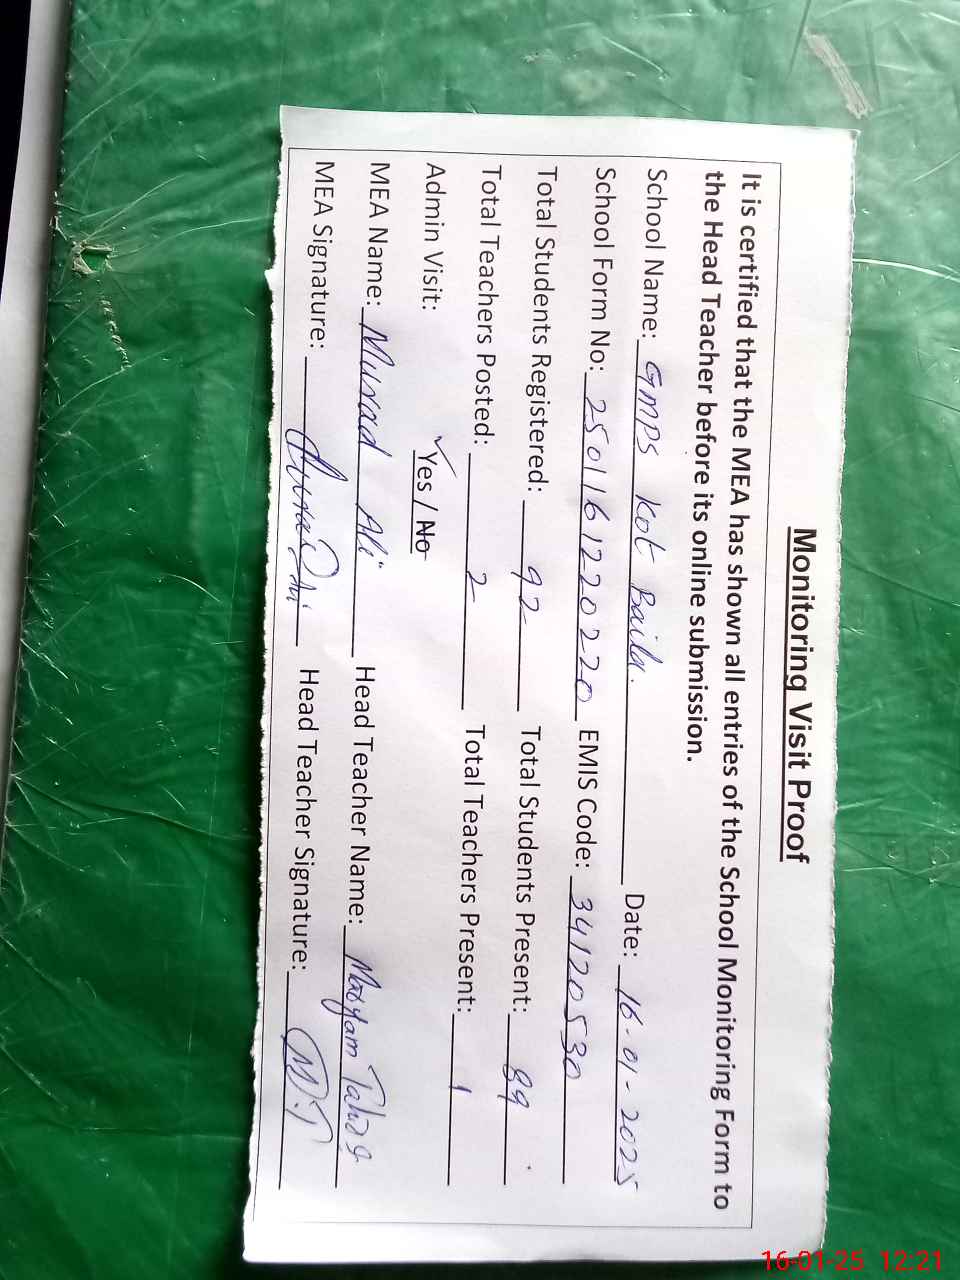 Monitoring Visit Proof
It is certified that the MEA has shown all entries of the School Monitoring Form to
the Head Teacher before its online submission.
School Name: GMPS Kot Baila. Date: 16-01-2025
School Form No: 2501161220220 EMIS Code: 34120530
Total Students Registered: 92 Total Students Present: 89
Total Teachers Posted: 2 Total Teachers Present: 1
Admin Visit: ✓Yes / No
MEA Name: Murad Ali Head Teacher Name: Maryam
MEA Signature: Head Teacher Signature: M.T
16-01-25 12:21